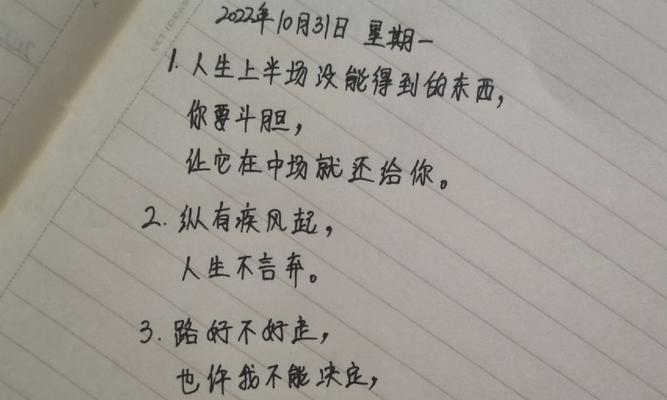 LET IDEAS
2022年10月31日 星期一
1. 人生上半场没能得到的东西,
你要斗胆,
让它在中场就还给你。
2. 纵有疾风起,
人生不言弃。
3. 路好不好走,
也许我不能决定,